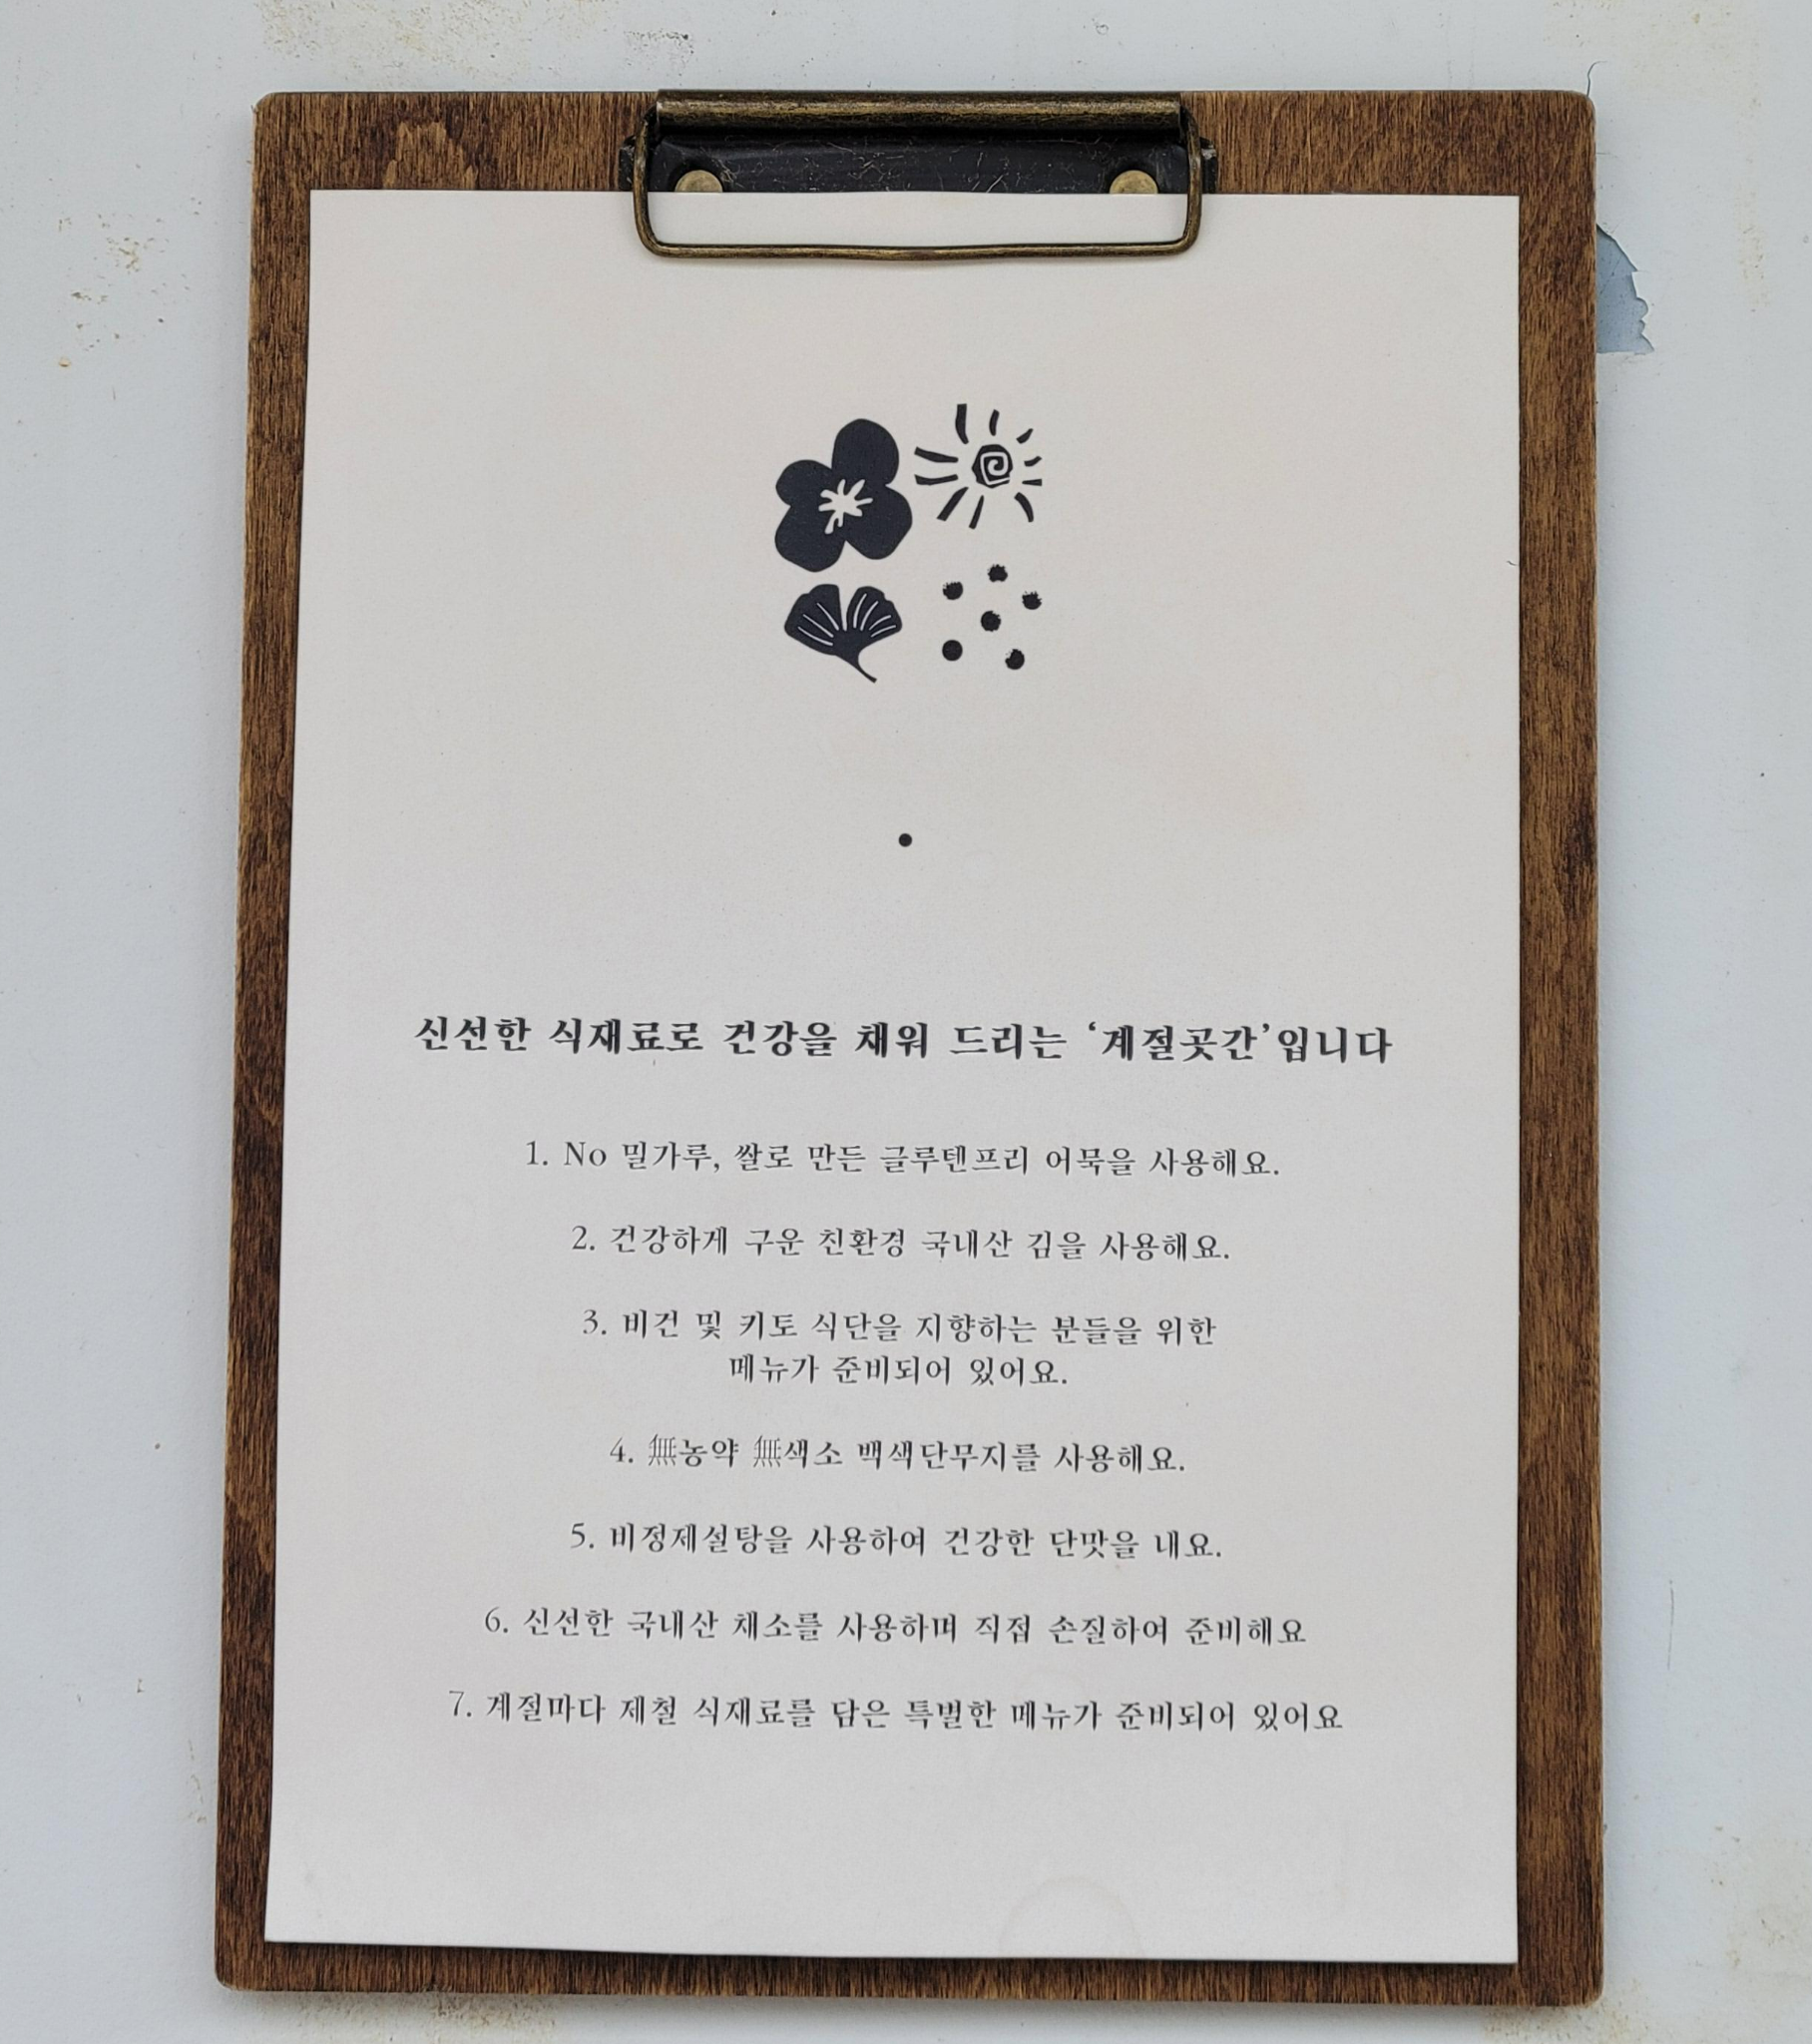 신선한 식재료로 건강을 채워 드리는 ‘계절곳간’입니다
1. No 밀가루, 쌀로 만든 글루텐프리 어묵을 사용해요.
2. 건강하게 구운 친환경 국내산 김을 사용해요.
3. 비건 및 키토 식단을 지향하는 분들을 위한
메뉴가 준비되어 있어요.
4. 無농약 無색소 백색단무지를 사용해요.
5. 비정제설탕을 사용하여 건강한 단맛을 내요.
6. 신선한 국내산 채소를 사용하며 직접 손질하여 준비해요
7. 계절마다 제철 식재료를 담은 특별한 메뉴가 준비되어 있어요